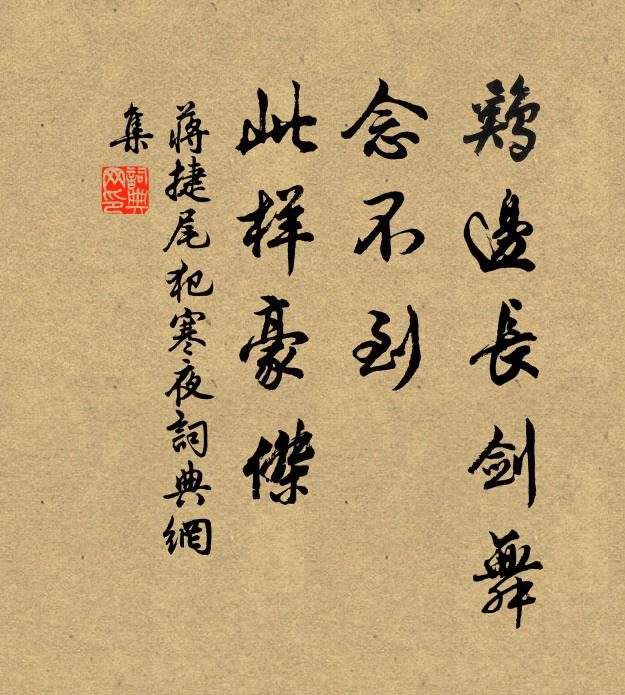 鷄邊長剑舞
念不到
此样豪傑
蒋捷尾犯寒夜詞典網
集
詞典
网印